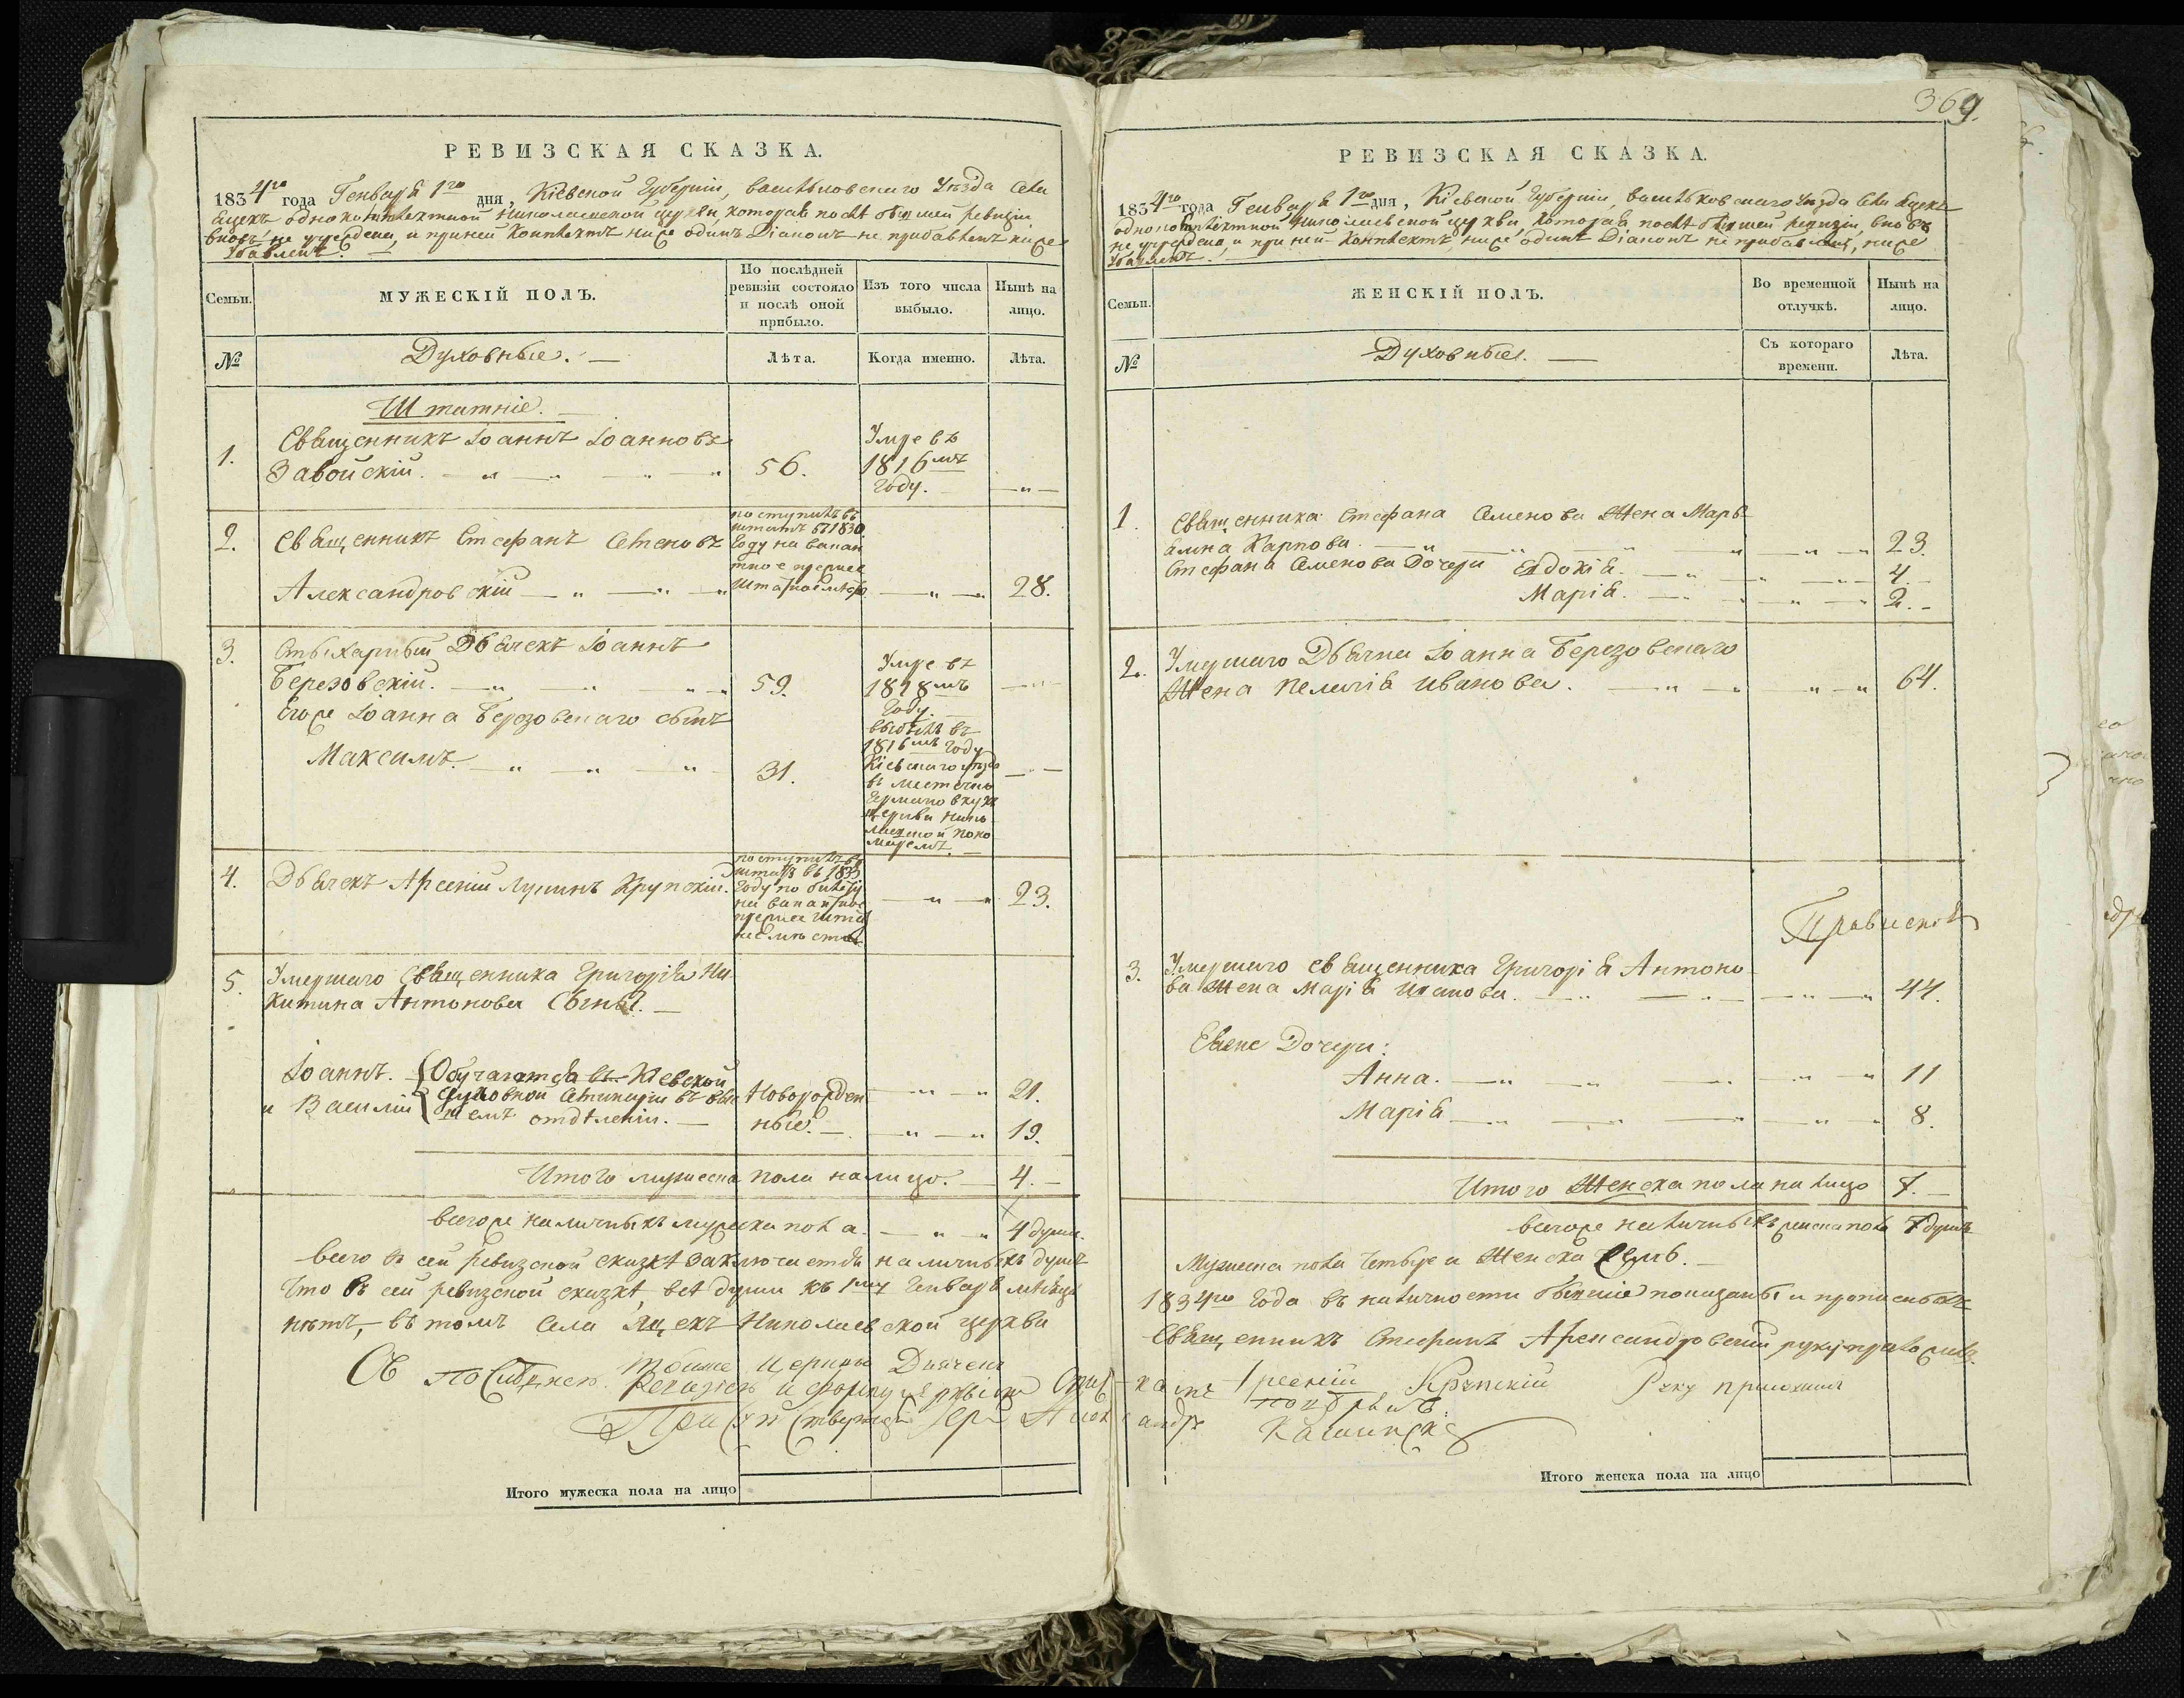 РЕВИЗСКАЯ СКАЗКА.
1834го года Генваря 1го дня, Кіевской Губерніи, Васильковскаго Уѣзда Села
Ящекъ однокомплектной Николаевской церкви, которая послѣ бывшей ревизіи
вновь не учреждена, и при ней комплектъ ниже одинъ Діаконъ не прибавленъ ниже
убавленъ.
Семьи.
МУЖЕСКІЙ ПОЛЪ.
По послѣдней
ревизіи состояло
и послѣ оной
прибыло.
Изъ того числа
выбыло.
Нынѣ на
лицо.
№
Духовные.
Лѣта.
Когда именно.
Лѣта.
Штатніе.
1.
Священникъ Іоаннъ Іоанновъ
Завойскій.
56.
Умре въ
1816мъ
году.
2.
Священникъ Стефанъ Семеновъ
Александровскій
поступилъ въ
штатъ въ 1830
году на вакан
тное
28.
3.
Стыхарный Дьячекъ Іоаннъ
Березовскій.
59.
Умре въ
1818мъ
году.
Егоже Іоанна Березовскаго сынъ
Максимъ.
31.
выбылъ въ
1816мъ году
Кіевскаго уѣзда
въ местечко
Германовку къ
церкви Нико
лаевской поно
маремъ.
4.
Дьячекъ Арсеній Лукинъ Крупскій.
поступилъ въ
штатъ въ 1833
году по билету
на вакантное
23.
5.
Умершаго Священника Григорія Ни
китина Антонова сыны.
Іоаннъ.
и Василій
Обучаются въ Кіевской
духовной Семинаріи въ выс
шемъ отдѣленіи.
Новорожден
ные.
21.
19.
Итого мужеска пола налицо. 4.
Всегоже наличныхъ мужеска пола. 4 души.
Всего въ сей ревизской сказкѣ заключается наличныхъ душъ
Что въ сей ревизской сказкѣ всѣ души къ 1му Генваря мѣсяца
нѣтъ, въ томъ Села Ящекъ Николаевской церкви
Тояже Церкви Дьячекъ
369.
РЕВИЗСКАЯ СКАЗКА.
1834го года Генваря 1го дня, Кіевской Губерніи, Васильковскаго Уѣзда Села Ящекъ
однокомплектной Николаевской церкви, которая послѣ бывшей ревизіи, вновь
не учреждена, и при ней комплектъ, ниже одинъ Діаконъ не прибавленъ, ниже
убавленъ.
Семьи.
ЖЕНСКІЙ ПОЛЪ.
Во временной
отлучкѣ.
Нынѣ на
лицо.
№
Духовные.
Съ котораго
времени.
Лѣта.
1.
Священника Стефана Семенова Жена Марь
яміна Карпова. 23.
Стефана Семенова Дочери Евдокія. 4.
Марія. 2.
2.
Умершаго Дьячка Іоанна Березовскаго
Жена Пелагія Иванова. 64.
3.
Умершаго священника Григорія Антоно
ва Жена Марія Иванова. 44.
Еяже Дочери:
Анна. 11
Марія 8.
Итого Женска пола на лицо 7.
Всегоже наличныхъ женска пола 7 душъ
Мужеска пола четыре и Женска семь.
1834го года въ наличности бывшіе показаны и прописныхъ
Священникъ Стефанъ Александровскій руку приложилъ.
Арсеній Крупскій Руку приложилъ
Итого мужеска пола на лицо
Итого женска пола на лицо